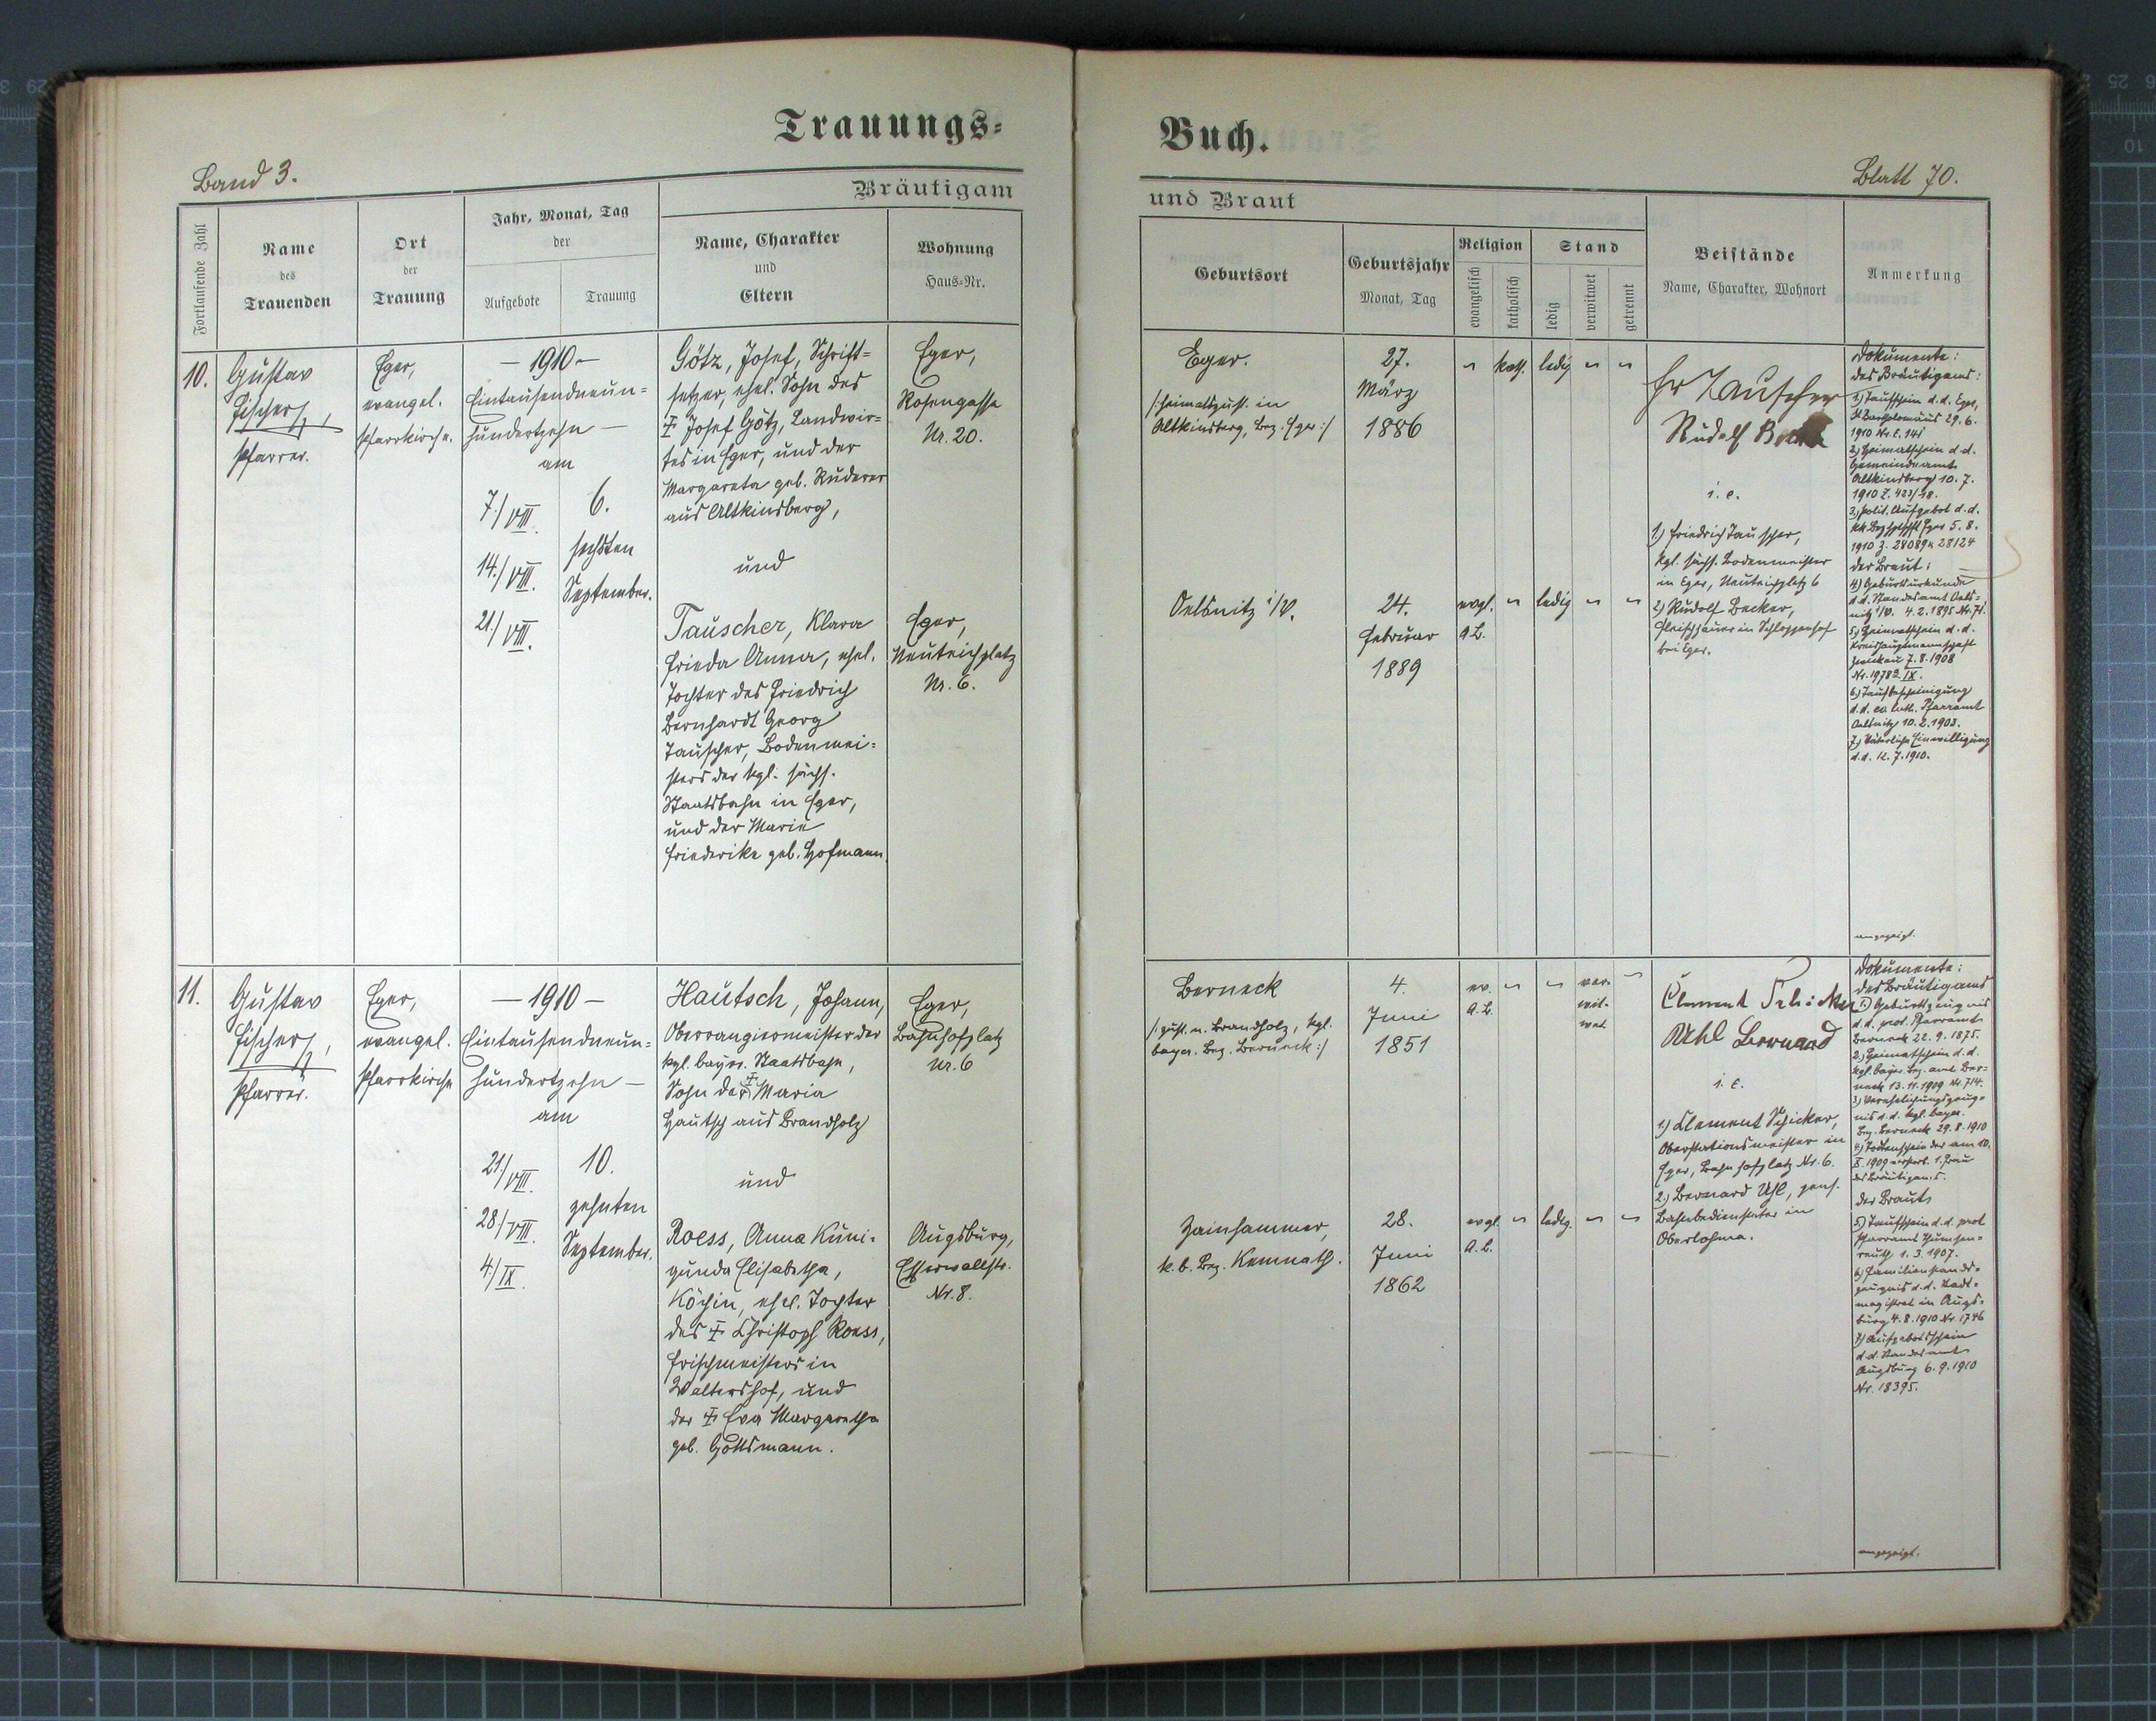 Trauungs=
Buch.
Band 3.
Blatt 70.
Bräutigam
und Braut
Fortlaufende Zahl
Name
des
Trauenden
Ort
der
Trauung
Jahr, Monat, Tag
der
Aufgebote
Trauung
Name, Charakter
und
Eltern
Wohnung
Haus=Nr.
Geburtsort
Geburtsjahr
Monat, Tag
Religion
evangelisch
katholisch
Stand
ledig
verwitwet
getrennt
Beistände
Name, Charakter, Wohnort
Anmerkung
10.
Gustav
Fischer,
Pfarrer.
Eger,
evangel.
Pfarrkirche.
— 1910 —
Eintausendneun=
hundertzehn —
am
7./VIII.
14./VIII.
21./VIII.
6.
sechsten
September.
Götz, Josef, Schrift=
setzer, ehel. Sohn des
Josef Götz, Landwir=
tes in Eger, und der
Margareta geb. Ruderer
aus Altkinsberg,
und
Tauscher, Klara
Frieda Anna, ehel.
Tochter des Friedrich
Bernhardt Georg
Tauscher, Bodenmei=
sters der kgl. sächs.
Staatsbahn in Eger,
und der Marie
Friederike geb. Hofmann.
Eger,
Rosengasse
Nr. 20.
Eger,
Neuteichplatz
Nr. 6.
Eger.
/: heimatszust. in
Altkinsberg, Bez. Eger :/
27.
März
1886
kath.
ledig
Oelsnitz i/V.
24.
Februar
1889
evgl.
A. B.
ledig
Fr Tauscher
Rudolf
i. e.
1.) Friedrich Tauscher,
kgl. sächs. Bodenmeister
in Eger, Neuteichplatz 6
2.) Rudolf Becker,
Fleischhauer in Schloppenhof
bei Eger.
Dokumente:
des Bräutigams:
1.) Taufschein d. d. Eger,
St Bartholomäus 29. 6.
1910 Nr. E. 141
2.) Heimatschein d. d.
Gemeindeamt
Altkinsberg 10. 7.
1910 Z. 423/48.
3.) polit. Aufgebot d. d.
Eger 5. 8.
1910 Z. 28089 u 28124
der Braut:
4.) Geburtsurkunde
d. d. Standesamt Oels=
nitz i/V. 4. 2. 1895 Nr. 71.
5.) Heimatschein d. d.
Kreishauptmannschaft
Zwickau 7. 8. 1908
Nr. 1978 IX.
6.) Taufbescheinigung
d. d. ev. luth. Pfarramt
Oelsnitz 10. 2. 1903.
7.) Väterliche Einwilligung
d. d. 12. 7. 1910.
angezeigt.
11.
Gustav
Fischer,
Pfarrer.
Eger,
evangel.
Pfarrkirche
— 1910 —
Eintausendneun=
hundertzehn —
am
21./VIII.
28./VIII.
4./IX.
10.
zehnten
September.
Hautsch, Johann,
Oberrangiermeister der
kgl. bayer. Staatsbahn,
Sohn der Maria
Hautsch aus Brandholz
und
Roess, Anna Kuni=
gunda Elisabetha,
Köchin, ehel. Tochter
des Christoph Roess,
Frischmeisters in
Waltershof, und
der Eva Margaretha
geb. Gottsmann.
Eger,
Bahnhofplatz
Nr. 6
Augsburg,
Nr. 8.
Berneck
/: zust. n. Brandholz, kgl.
bayer. Bez. Berneck :/
4.
Juni
1851
ev.
A. B.
ver=
wit=
wet
Zainhammer,
k. b. Bez. Kemnath.
28.
Juni
1862
evgl
A. B.
ledig.
Clement Schicker
Uhl Bernard
i. e.
1.) Klement Schicker,
Oberstationsmeister in
Eger, Bahnhofplatz Nr. 6.
2.) Bernard Uhl, pens.
Bahnbediensteter in
Oberlohma.
Dokumente:
des Bräutigams
1.) Geburtszeugnis
d. d. prot. Pfarramt
Berneck 22. 9. 1875.
2.) Heimatschein d. d.
kgl. bayer. Bez. amt Ber=
neck 13. 11. 1909 Nr. 714.
3.) Verehelichungszeug=
nis d. d. kgl. bayer.
Bez. Berneck 29. 8. 1910
4.) Totenschein der am 10.
X. 1909 verstorb. 1. Frau
des Bräutigams.
der Braut
5.) Taufschein d. d. prot
Pfarramt Thumsen=
reuth 1. 3. 1907.
6.) Familienstands=
zeugnis d. d. Stadt=
magistrat in Augs=
burg 4. 8. 1910 Nr. 1746
7.) Aufgebotsschein
d. d. Standesamt
Augsburg 6. 9. 1910
Nr. 18395.
angezeigt.